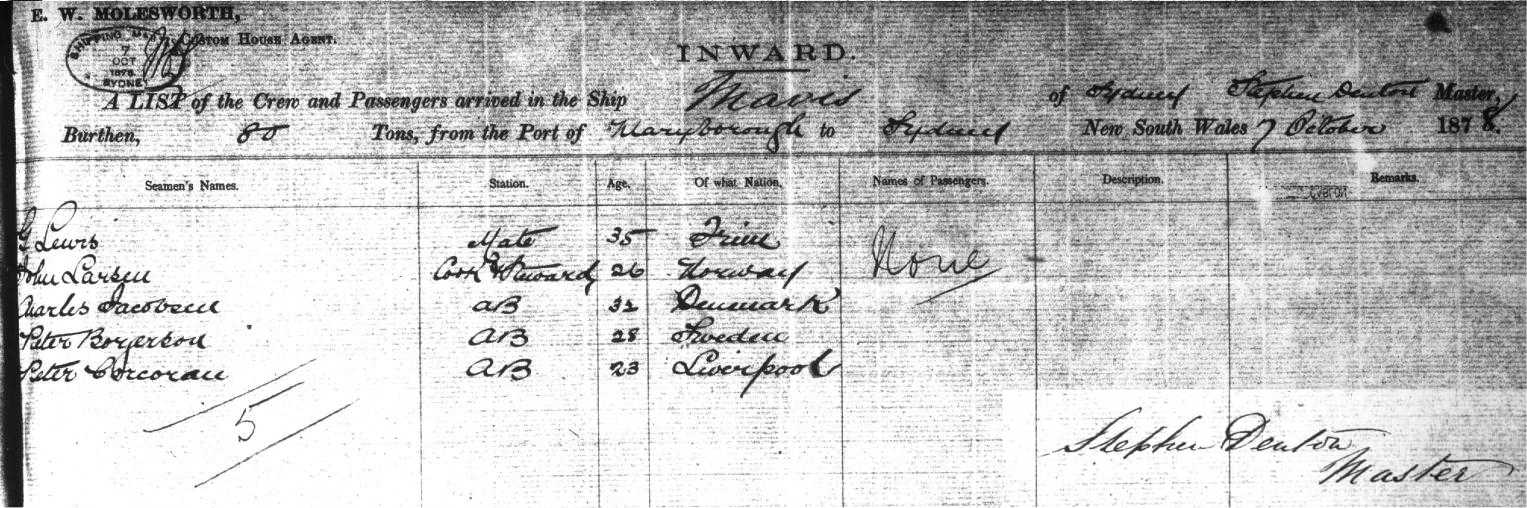 E. W. MOLESWORTH,
CUSTOM HOUSE AGENT.
SHIPPING
7
OCT
1878
SYDNEY
INWARD.
A LIST of the Crew and Passengers arrived in the Ship Mavis of Sydney Stephen Denton Master,
Burthen, 80 Tons, from the Port of Maryborough to Sydney New South Wales 7 October 1878.
Seamen's Names. Station. Age. Of what Nation. Names of Passengers. Description. Remarks.
G Lewis Mate 35
John Larsen Cook & Steward 26 Norway None
Charles Jacobsen AB 32 Denmark
Peter AB 28 Sweden
Peter Corcoran AB 23 Liverpool
5
Stephen Denton
Master